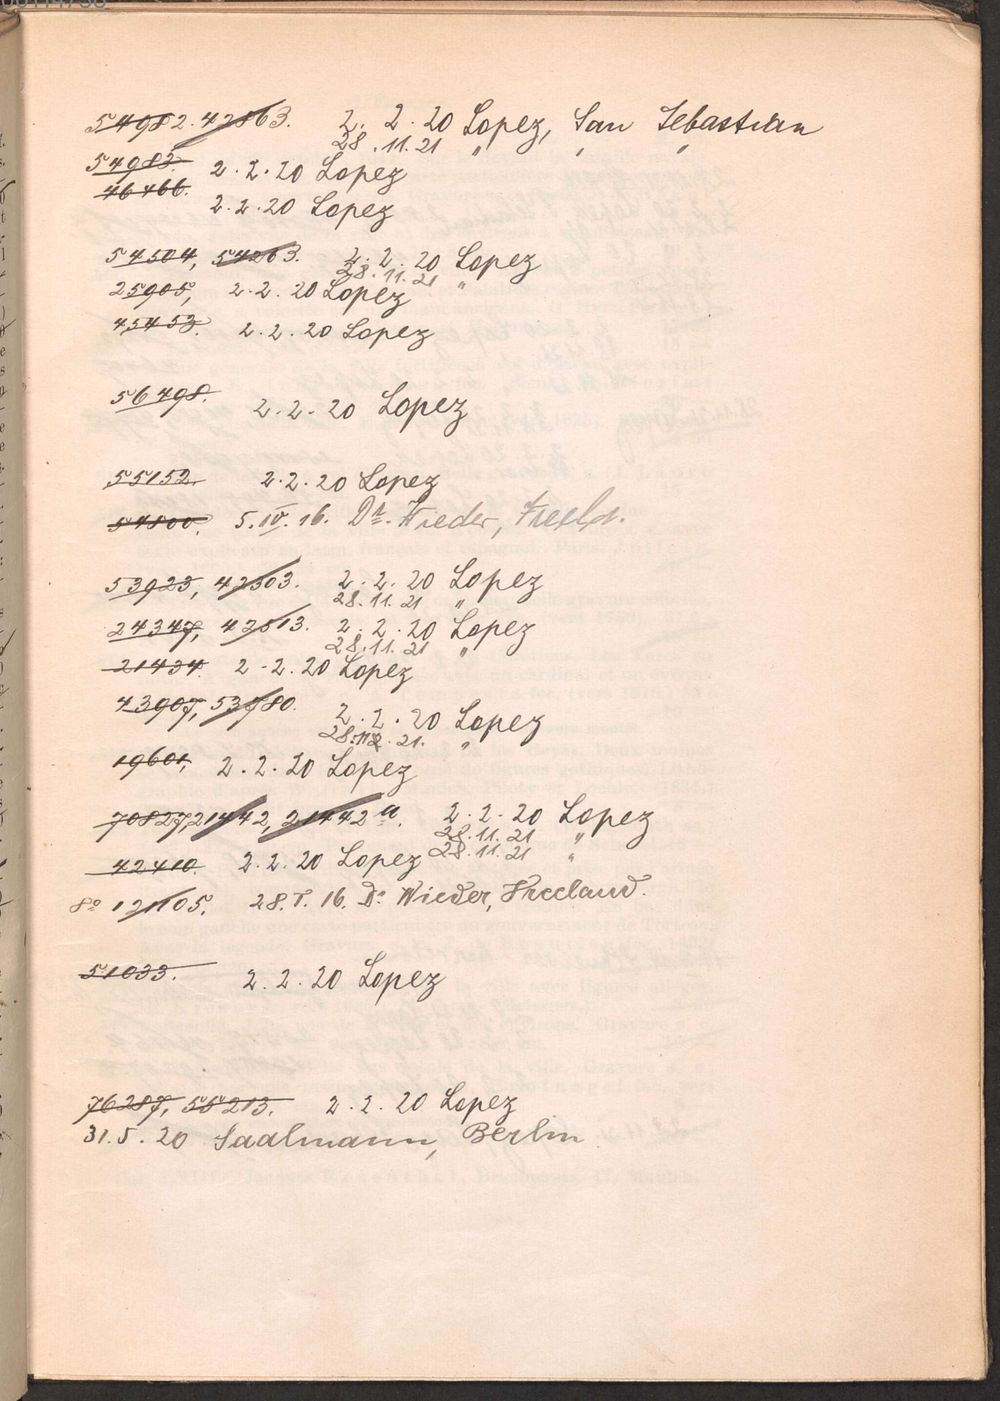 54982. 42863. 2. 2. 20 Lopez, San Sebastian
28.11.21 " " "
54983. 2.2.20 Lopez
46466. 2.2.20 Lopez
54504, 54263. 2.2.20 Lopez
28.11.21 "
25905, 2.2.20 Lopez
45453. 2.2.20 Lopez
56498. 2.2.20 Lopez
55152. 2.2.20 Lopez
54800. 5.IV.16. Dr. Wieder,
53923, 42503. 2.2.20 Lopez
28.11.21 "
24347, 42513. 2.2.20 Lopez
28.11.21 "
21434. 2.2.20 Lopez
43907, 53980. 2.2.20 Lopez
28.11.21. "
19601, 2.2.20 Lopez
70827, 21442, 21442a. 2.2.20 Lopez
28.11.21 "
28.11.21 "
42410. 2.2.20 Lopez
8° 121105. 28.V.16. Dr Wieder, Freeland.
51033. 2.2.20 Lopez
76287, 55213. 2.2.20 Lopez
31.5.20 Saalmann, Berlin